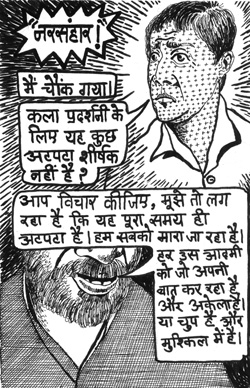 नरसंहार!
मैं चौंक गया।
कला प्रदर्शनी के
लिए यह कुछ
अटपटा शीर्षक
नहीं है?
आप विचार कीजिए, मुझे तो लग
रहा है कि यह पूरा समय ही
अटपटा है। हम सबको मारा जा रहा है।
हर इस आदमी
को जो अपनी
बात कर रहा है
और अकेला है
या चुप है और
मुश्किल में है।